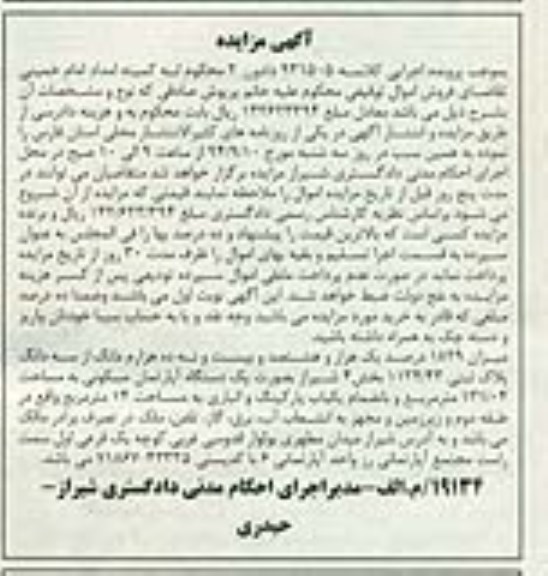 آگهی مزایده
بموجب پرونده اجرایی کلاسه ۹۳۱۵۰۵ محکوم لیه کمیته امداد امام خمینی
تقاضای فروش اموال توقیفی محکوم علیه خانم پریوش صادقی که نوع و مشخصات آن
بشرح ذیل می باشد معادل مبلغ ریال بابت محکوم به و هزینه دادرسی از
طریق مزایده و انتشار آگهی در یکی از روزنامه های کثیرالانتشار محلی استان فارس را
نموده به همین سبب در روز سه شنبه مورخ ۹۴/۹/۱۰ از ساعت ۹ الی ۱۰ صبح در محل
اجرای احکام مدنی دادگستری شیراز مزایده برگزار خواهد شد متقاضیان می توانند در
مدت پنج روز قبل از تاریخ مزایده اموال را ملاحظه نمایند قیمتی که مزایده از آن شروع
می شود براساس نظریه کارشناس رسمی دادگستری مبلغ ریال و برنده
مزایده کسی است که بالاترین قیمت را پیشنهاد و ده درصد بها را فی المجلس به عنوان
سپرده به قسمت اجرا تسلیم و بقیه بهای اموال را ظرف مدت ۳۰ روز از تاریخ مزایده
پرداخت نماید در صورت عدم پرداخت مابقی اموال سپرده تودیعی پس از کسر هزینه
مزایده به نفع دولت ضبط خواهد شد. این آگهی نوبت اول می باشد وضمنا ده درصد
مبلغی که قادر به خرید مورد مزایده می باشید وجه نقد و یا به حساب سیبا خودتان واریز
و دسته چک به همراه داشته باشید.
میزان ۱۸۲۹ درصد یک هزار و هشتصد و بیست و نه ده هزارم دانگ از سه دانگ
پلاک ثبتی بخش ۴ شیراز بصورت یک دستگاه آپارتمان مسکونی به مساحت
مترمربع و بانضمام یکباب پارکینگ و انباری به مساحت ۱۴ مترمربع واقع در
طبقه دوم و زیرزمین و مجهز به انشعاب آب، برق، گاز، تلفن، ملک در تصرف برادر مالک
می باشد و به آدرس شیراز میدان مطهری بولوار قدوسی غربی کوچه یک فرعی اول سمت
راست مجتمع آپارتمانی رز واحد آپارتمانی ۶ با کدپستی می باشد.
۱۹۱۳۴/م.الف-مدیراجرای احکام مدنی دادگستری شیراز-
حیدری